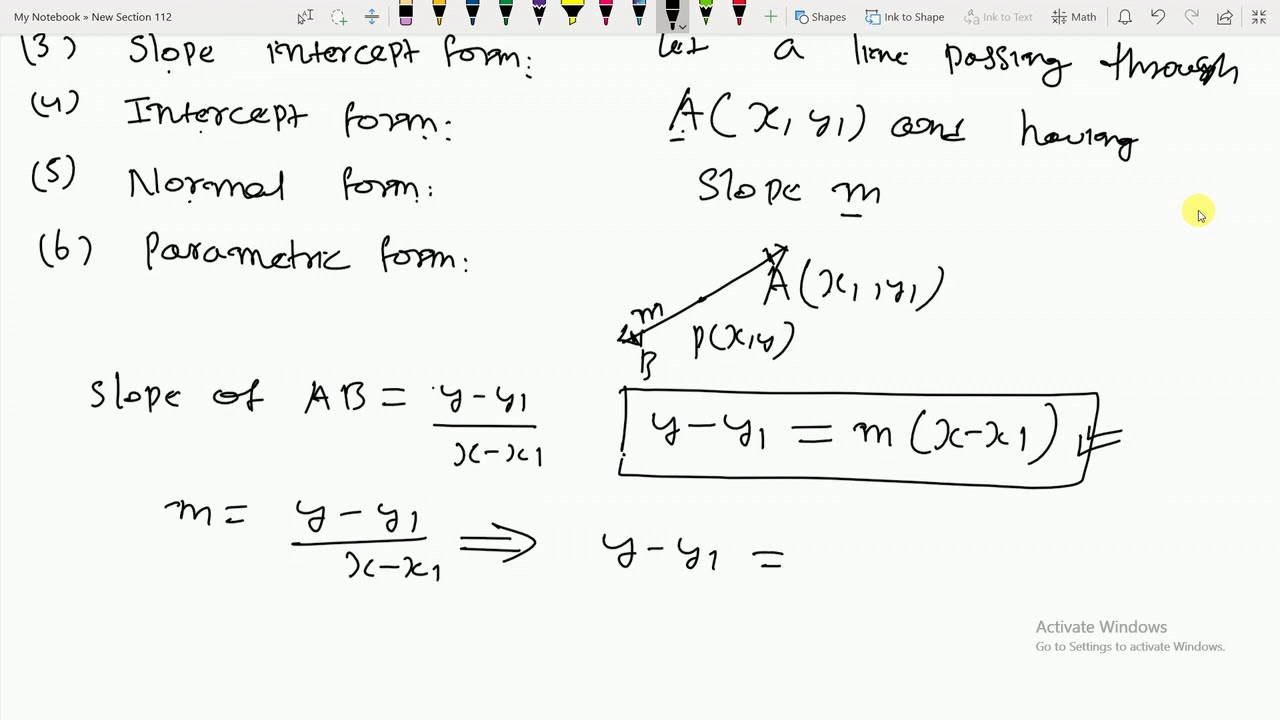 My Notebook » New Section 112
Shapes
Ink to Shape
Ink to Text
Math
(3) Slope intercept form:
(4) Intercept form:
(5) Normal form:
(6) Parametric form:
Let a line passing through
A(x, y1) and having
Slope m
A(x1, y1)
m
P(x,y)
B
Slope of AB = y-y1 / x-x1
y-y1 = m(x-x1)
m = y-y1 / x-x1 ⟹ y-y1 =
Activate Windows
Go to Settings to activate Windows.